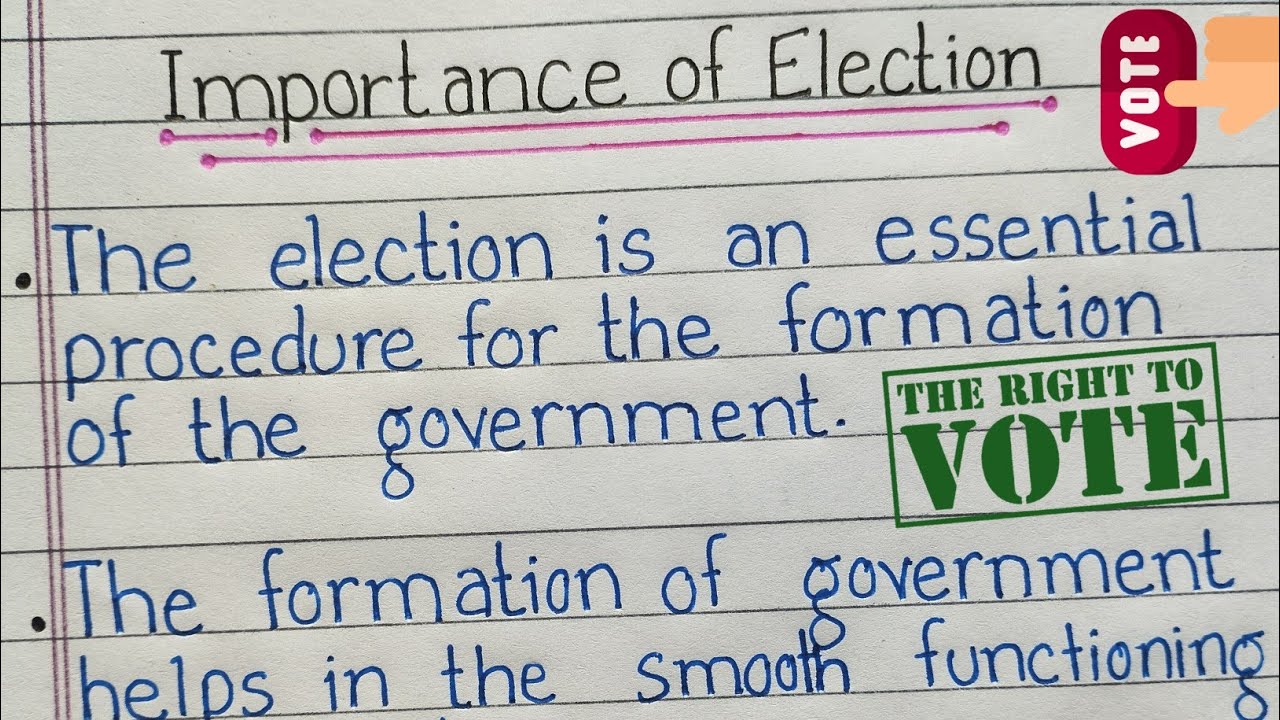 Importance of Election
VOTE
The election is an essential
procedure for the formation
of the government.
THE RIGHT TO
VOTE
The formation of government
helps in the smooth functioning